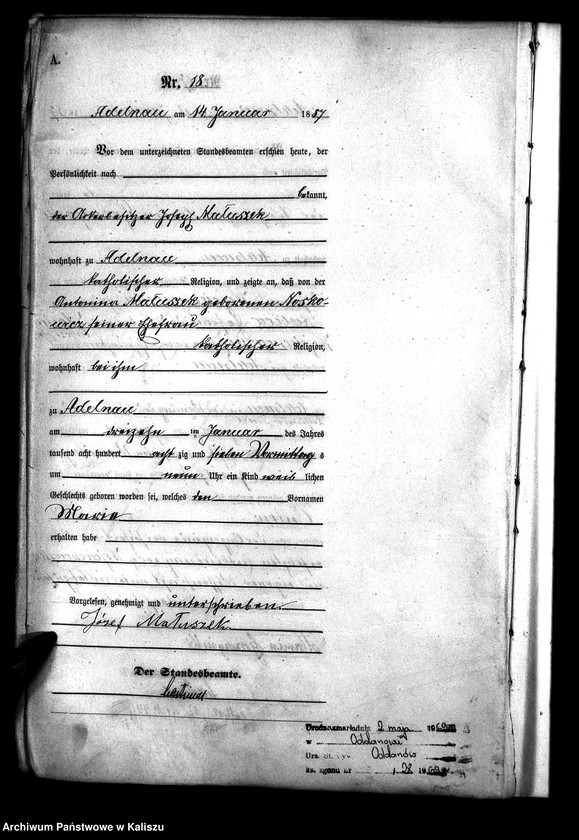 A.
Nr. 18
Adelnau am 14 Januar 1887
Vor dem unterzeichneten Standesbeamten erschien heute, der
Persönlichkeit nach
bekannt,
der Ackerbesitzer Joseph Matuszek
wohnhaft zu Adelnau
katholischer Religion, und zeigte an, daß von der
Antonina Matuszek geborenen Nosko-
wicz seiner Ehefrau
katholischer Religion,
wohnhaft bei ihm
zu Adelnau
am dreizehn ten Januar des Jahres
tausend acht hundert acht zig und sieben Vormittag s
um neun Uhr ein Kind weib lichen
Geschlechts geboren worden sei, welches den Vornamen
Marie
erhalten habe
Vorgelesen, genehmigt und unterschrieben
Józef Matuszek
Der Standesbeamte.
2 maja 196
w
Odolanów
19
Archiwum Państwowe w Kaliszu